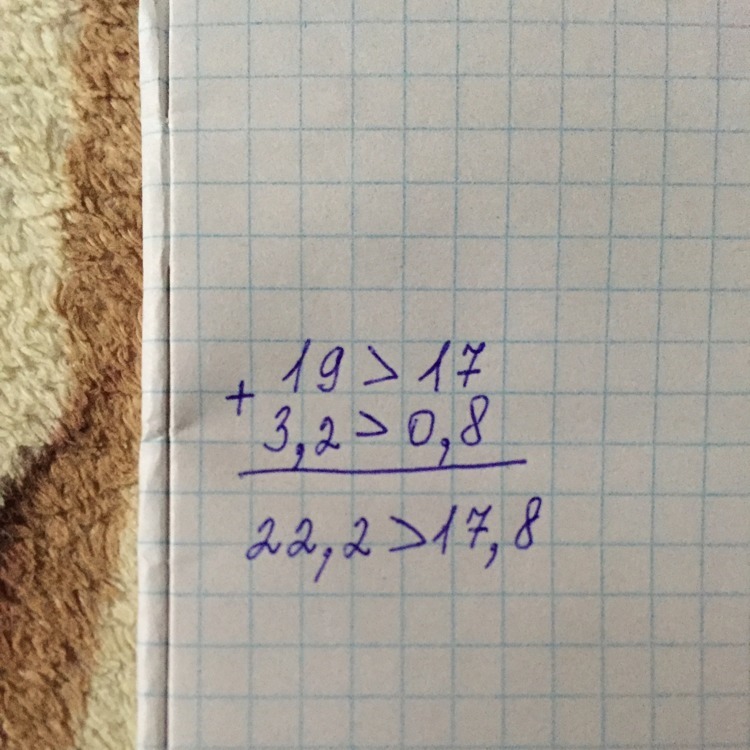 19 > 17
+
3,2 > 0,8
22,2 > 17,8